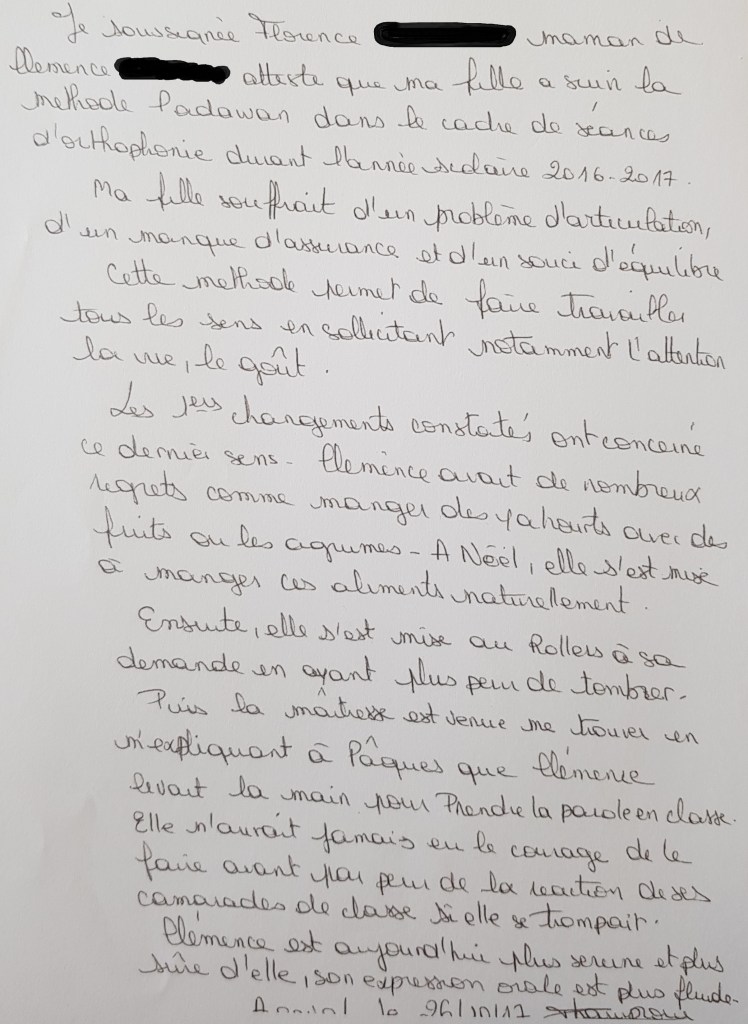 Je soussignée Florence maman de
Clemence atteste que ma fille a suivi la
methode Padawan dans le cadre de séances
d'orthophonie durant l'année scolaire 2016-2017.
Ma fille souffrait d'un problème d'articulation,
d'un manque d'assurance et d'un souci d'équilibre
Cette methode permet de faire travailler
tous les sens en sollicitant notamment l'attention
la vue, le goût.
Les 1ers changements constatés ont concerné
ce dernier sens - Clemence avait de nombreux
regrets comme manger des yahourts avec des
fruits ou les agrumes - A Nöël, elle s'est mise
à manger ces aliments naturellement.
Ensuite, elle s'est mise au Rollers à sa
demande en ayant plus peur de tomber.
Puis la maîtresse est venue me trouver en
m'expliquant à Pâques que Clémence
levait la main pour Prendre la parole en classe.
Elle n'aurait jamais eu le courage de le
faire avant par peur de la reaction de ses
camarades de classe si elle se trompait.
Clémence est aujourd'hui plus sereine et plus
sûre d'elle, son expression orale est plus fluide-